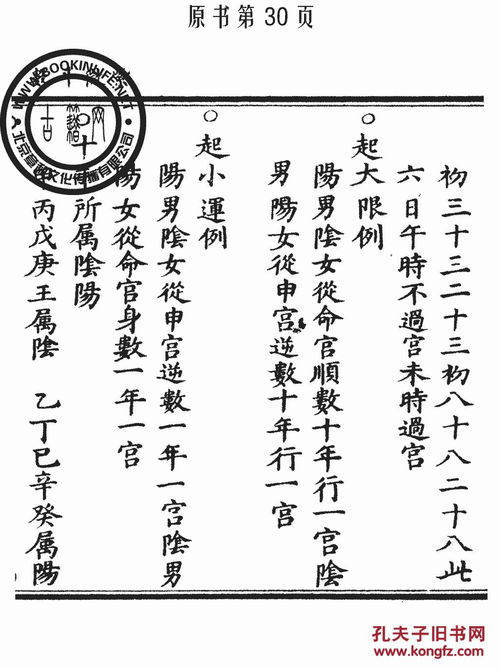 原书第30页
初三十三二十三初八十八二十八此
六日午時不過宫未時過宫
○起大限例
陽男陰女從命官順數十年行一宫陰
男陽女從申宫逆數十年行一宫
○起小運例
陽男陰女從申宫逆數一年一宫陰男
陽女從命宫身數一年一宫
○十
所属陰陽
丙戊庚王属陰 乙丁已辛癸属陽
WWW.BOOKINLIFE.NET
文化传播有限公司
孔夫子旧书网
www.kongfz.com